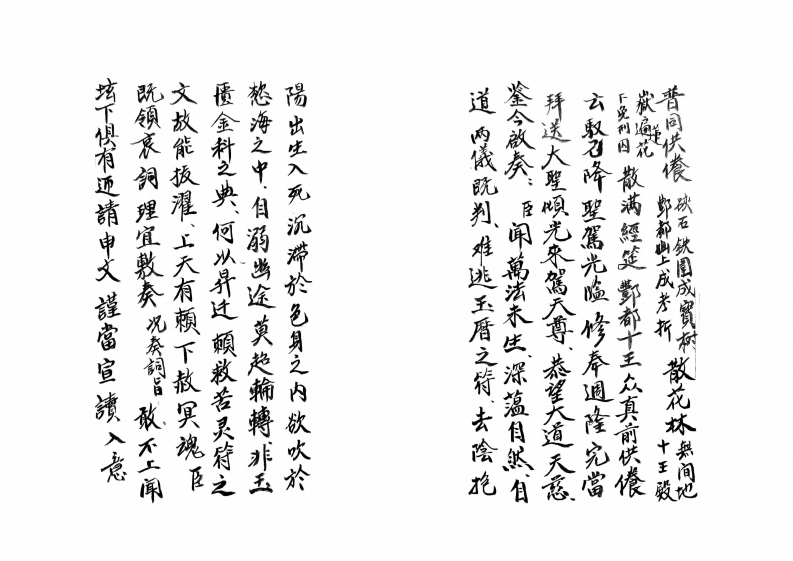 普同供養 硤石鉄圍成寶樹 散花林 無間地
獄遍蓮花 酆都山上成考折 十王殿
下免刑囚 散满經筵 酆都十王众真前供養
云馭召降聖駕光臨修奉週隆完當
拜送大聖傾光來駕天尊、恭望大道天慈、
鉴今啟奏、臣聞萬法未生、深蕴自然、自
道两儀既判、难逃玉曆之符、去陰抱
陽出生入死沉滯於色身之内欲吹於
愁海之中、自溺幽途莫超輪轉、非玉
匱金科之典、何以昇迁頼救苦灵符之
文故能拔濯、上天有賴下赦冥魂臣
既領哀詞理宜敷奏 况奏詞旨 敢不上聞
坛下俱有迊請申文謹當宣讀入意